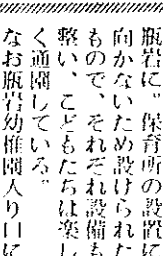 瓶岩に。保育所の設置に
向かないため設けられた
もので、それぞれ設備も
整い、こどもたちは楽し
く通園している。
なお瓶岩幼稚園入り口に